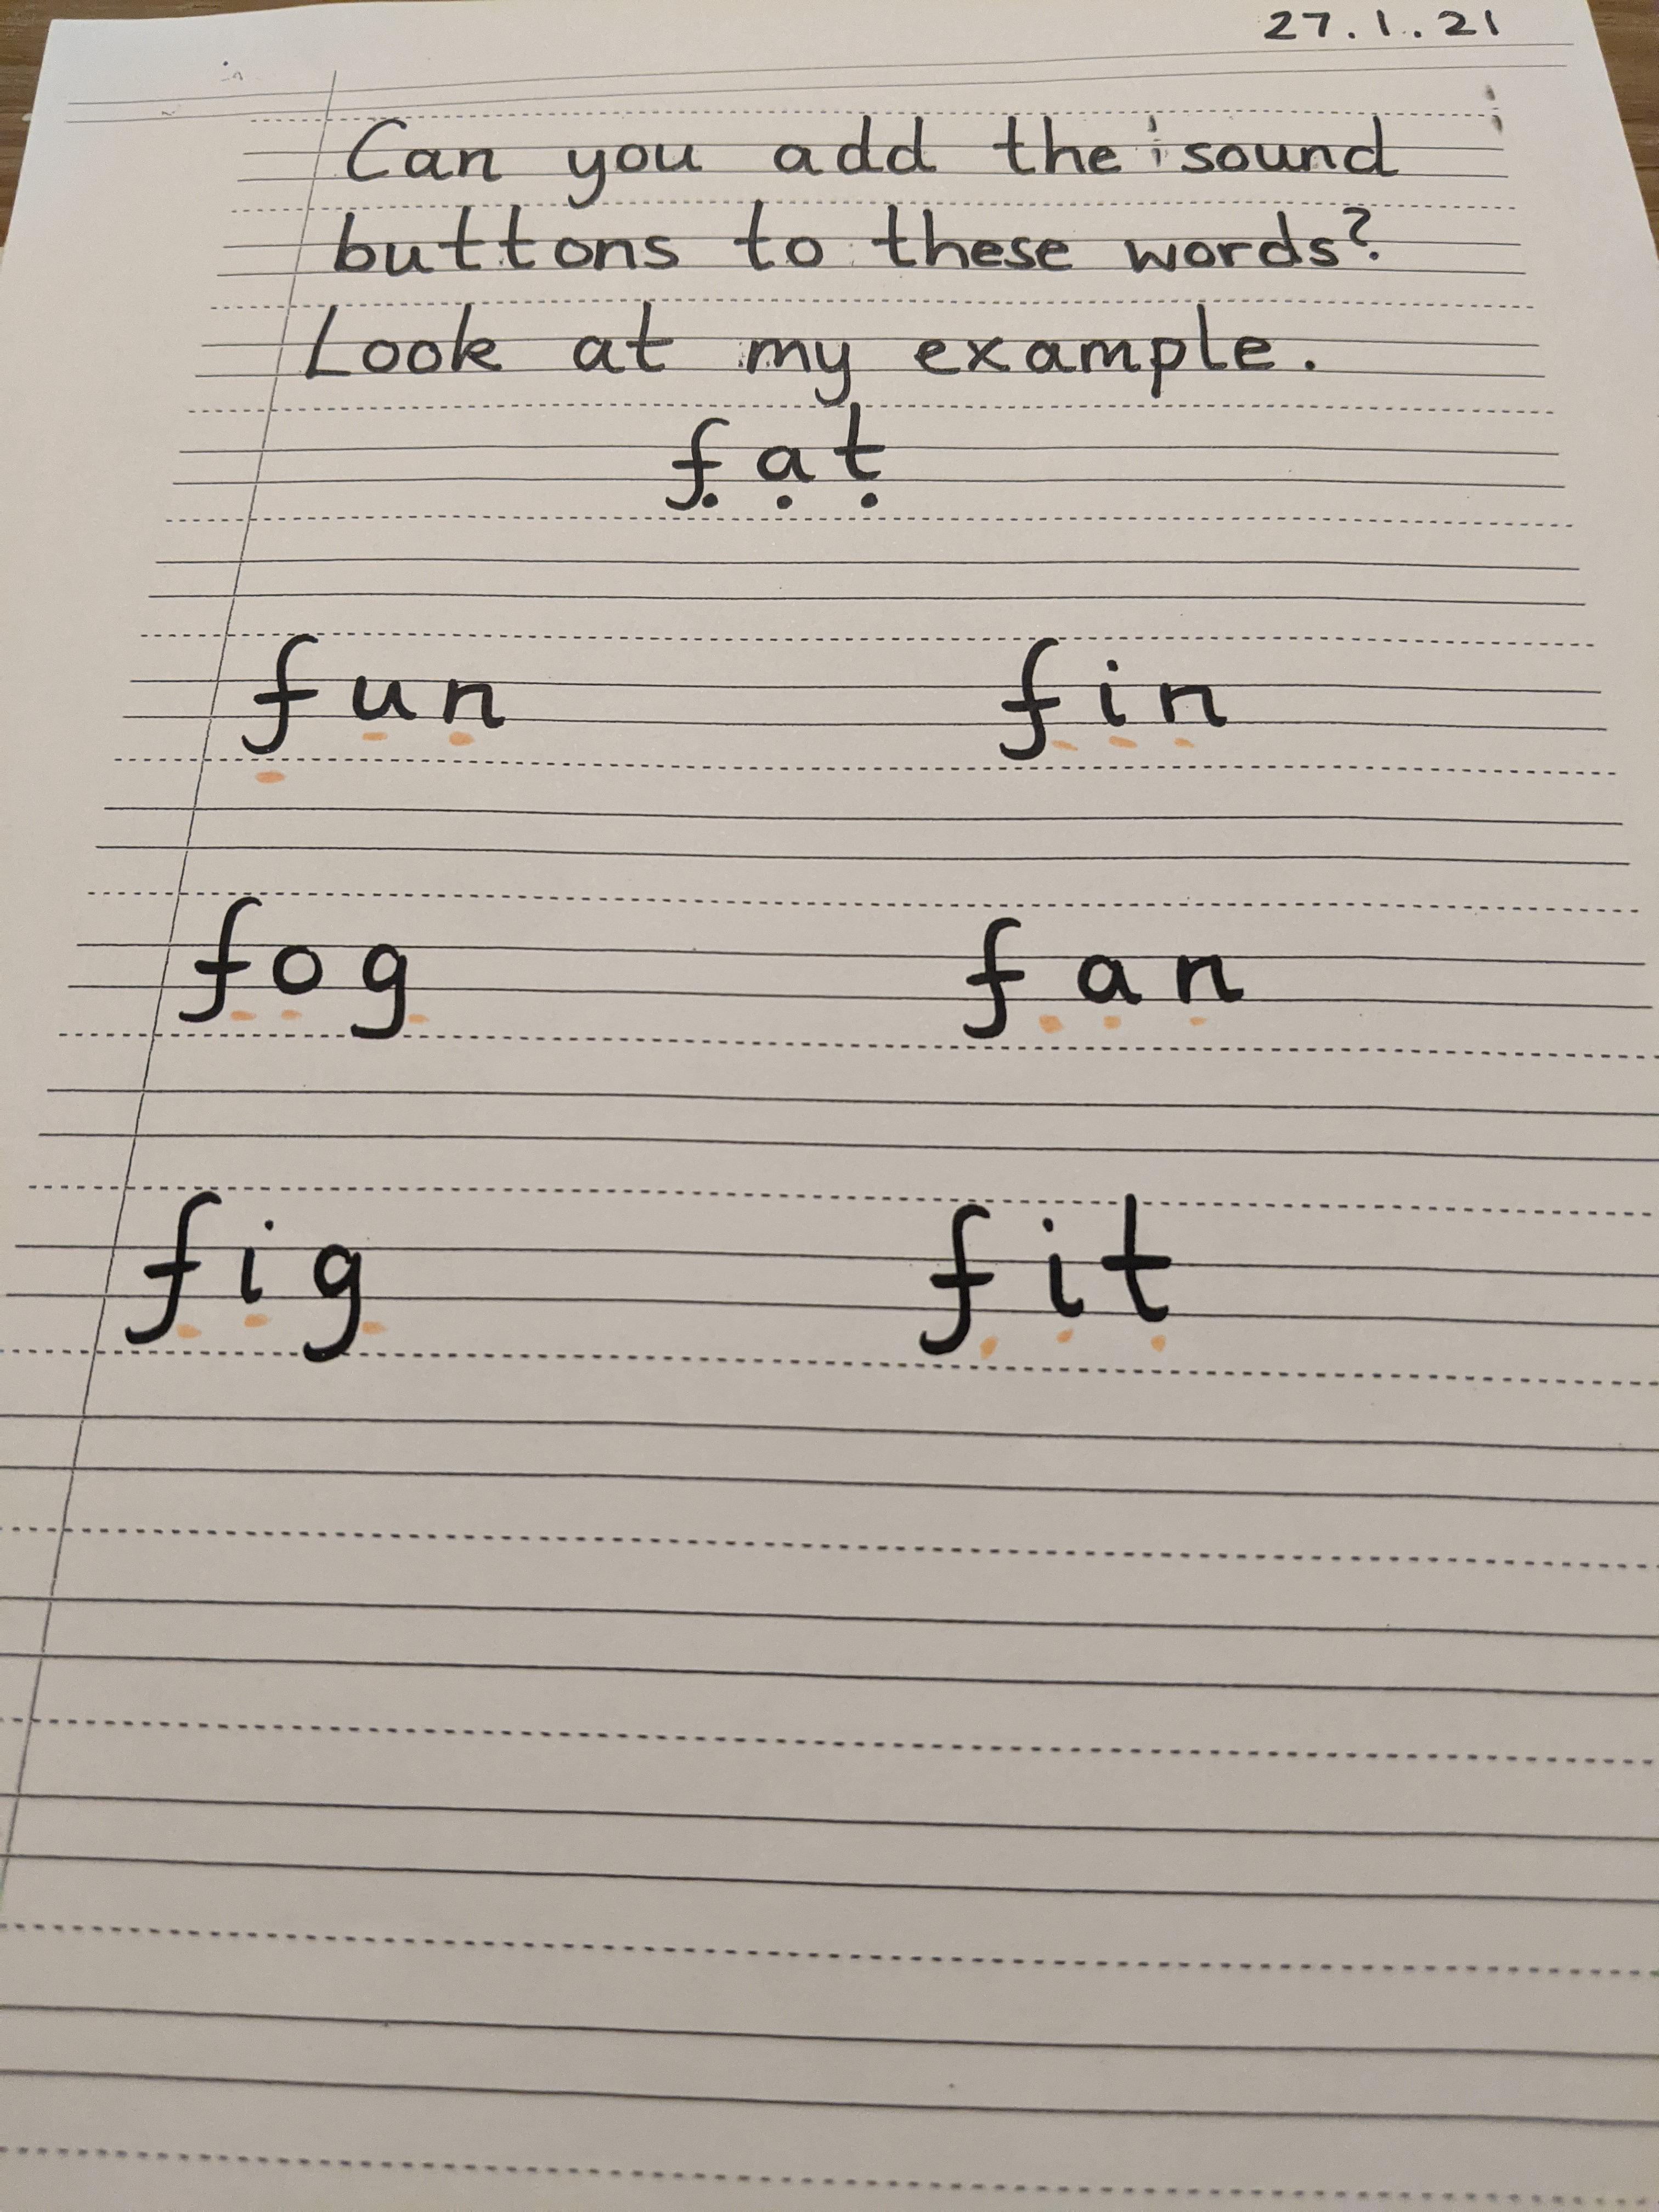 27.1.21
Can you add the sound
buttons to these words?
Look at my example.
fat
fun fin
fog fan
fig fit